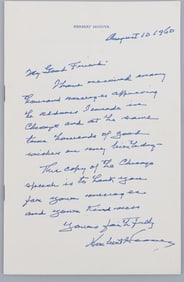 HERBERT HOOVER
August 10 1960
My Good Friend:
I have received many
thousand messages approving
the address I made in
Chicago and at the same
time thousands of good
wishes on my birthday—
This copy of the Chicago
speech is to thank you
for your message
and your kindness
Yours faithfully
Herbert Hoover